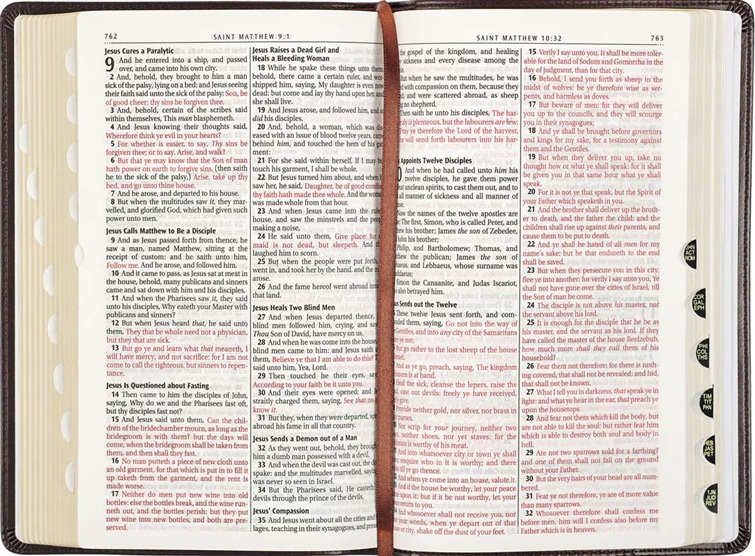 762
SAINT MATTHEW 9:1
Jesus Cures a Paralytic
9 And he entered into a ship, and passed
over, and came into his own city.
2 And, behold, they brought to him a man
sick of the palsy, lying on a bed: and Jesus seeing
their faith said unto the sick of the palsy; Son, be
of good cheer; thy sins be forgiven thee.
3 And, behold, certain of the scribes said
within themselves, This man blasphemeth.
4 And Jesus knowing their thoughts said,
Wherefore think ye evil in your hearts?
5 For whether is easier, to say, Thy sins be
forgiven thee; or to say, Arise, and walk?
6 But that ye may know that the Son of man
hath power on earth to forgive sins, (then saith
he to the sick of the palsy,) Arise, take up thy
bed, and go unto thine house.
7 And he arose, and departed to his house.
8 But when the multitudes saw it, they mar-
velled, and glorified God, which had given such
power unto men.
Jesus Calls Matthew to Be a Disciple
9 And as Jesus passed forth from thence, he
saw a man, named Matthew, sitting at the
receipt of custom: and he saith unto him,
Follow me. And he arose, and followed him.
10 And it came to pass, as Jesus sat at meat in
the house, behold, many publicans and sinners
came and sat down with him and his disciples.
11 And when the Pharisees saw it, they said
unto his disciples, Why eateth your Master with
publicans and sinners?
12 But when Jesus heard that, he said unto
them, They that be whole need not a physician,
but they that are sick.
13 But go ye and learn what that meaneth, I
will have mercy, and not sacrifice: for I am not
come to call the righteous, but sinners to repen-
tance.
Jesus Is Questioned about Fasting
14 Then came to him the disciples of John,
saying, Why do we and the Pharisees fast oft,
but thy disciples fast not?
15 And Jesus said unto them, Can the chil-
dren of the bridechamber mourn, as long as the
bridegroom is with them? but the days will
come, when the bridegroom shall be taken from
them, and then shall they fast.
16 No man putteth a piece of new cloth unto
an old garment, for that which is put in to fill it
up taketh from the garment, and the rent is
made worse.
17 Neither do men put new wine into old
bottles: else the bottles break, and the wine run-
neth out, and the bottles perish: but they put
new wine into new bottles, and both are pre-
served.
Jesus Raises a Dead Girl and
Heals a Bleeding Woman
18 While he spake these things unto them,
behold, there came a certain ruler, and wor-
shipped him, saying, My daughter is even now
dead: but come and lay thy hand upon her, and
she shall live.
19 And Jesus arose, and followed him, and so
did his disciples.
20 And, behold, a woman, which was dis-
eased with an issue of blood twelve years, came
behind him, and touched the hem of his gar-
ment:
21 For she said within herself, If I may but
touch his garment, I shall be whole.
22 But Jesus turned him about, and when he
saw her, he said, Daughter, be of good comfort;
thy faith hath made thee whole. And the woman
was made whole from that hour.
23 And when Jesus came into the ruler's
house, and saw the minstrels and the people
making a noise,
24 He said unto them, Give place: for the
maid is not dead, but sleepeth. And they
laughed him to scorn.
25 But when the people were put forth, he
went in, and took her by the hand, and the maid
arose.
26 And the fame hereof went abroad into all
that land.
Jesus Heals Two Blind Men
27 And when Jesus departed thence, two
blind men followed him, crying, and saying,
Thou Son of David, have mercy on us.
28 And when he was come into the house, the
blind men came to him: and Jesus saith unto
them, Believe ye that I am able to do this? They
said unto him, Yea, Lord.
29 Then touched he their eyes, saying,
According to your faith be it unto you.
30 And their eyes were opened; and Jesus
straitly charged them, saying, See that no man
know it.
31 But they, when they were departed, spread
abroad his fame in all that country.
Jesus Sends a Demon out of a Man
32 As they went out, behold, they brought to
him a dumb man possessed with a devil.
33 And when the devil was cast out, the dumb
spake: and the multitudes marvelled, saying, It
was never so seen in Israel.
34 But the Pharisees said, He casteth out
devils through the prince of the devils.
Jesus' Compassion
35 And Jesus went about all the cities and vil-
lages, teaching in their synagogues, and preach-
SAINT MATTHEW 10:32
763
the gospel of the kingdom, and healing
sickness and every disease among the
But when he saw the multitudes, he was
with compassion on them, because they
and were scattered abroad, as sheep
no shepherd.
Then saith he unto his disciples, The har-
is plenteous, but the labourers are few;
ye therefore the Lord of the harvest,
he will send forth labourers into his har-
Appoints Twelve Disciples
And when he had called unto him his
twelve disciples, he gave them power
unclean spirits, to cast them out, and to
all manner of sickness and all manner of
Now the names of the twelve apostles are
The first, Simon, who is called Peter, and
his brother; James the son of Zebedee,
John his brother;
Philip, and Bartholomew; Thomas, and
the publican; James the son of
and Lebbaeus, whose surname was
Simon the Canaanite, and Judas Iscariot,
also betrayed him.
Sends out the Twelve
These twelve Jesus sent forth, and com-
them, saying, Go not into the way of
Gentiles, and into any city of the Samaritans
ye not:
But go rather to the lost sheep of the house
And as ye go, preach, saying, The kingdom
is at hand.
Heal the sick, cleanse the lepers, raise the
out devils: freely ye have received,
give.
Provide neither gold, nor silver, nor brass in
purses,
Nor scrip for your journey, neither two
neither shoes, nor yet staves: for the
is worthy of his meat.
And into whatsoever city or town ye shall
enquire who in it is worthy; and there
till ye go thence.
And when ye come into an house, salute it.
And if the house be worthy, let your peace
upon it: but if it be not worthy, let your
return to you.
And whosoever shall not receive you, nor
your words, when ye depart out of that
city, shake off the dust of your feet.
15 Verily I say unto you, It shall be more toler-
able for the land of Sodom and Gomorrha in the
day of judgment, than for that city.
16 Behold, I send you forth as sheep in the
midst of wolves: be ye therefore wise as ser-
pents, and harmless as doves.
17 But beware of men: for they will deliver
you up to the councils, and they will scourge
you in their synagogues;
18 And ye shall be brought before governors
and kings for my sake, for a testimony against
them and the Gentiles.
19 But when they deliver you up, take no
thought how or what ye shall speak: for it shall
be given you in that same hour what ye shall
speak.
20 For it is not ye that speak, but the Spirit of
your Father which speaketh in you.
21 And the brother shall deliver up the broth-
er to death, and the father the child: and the
children shall rise up against their parents, and
cause them to be put to death.
22 And ye shall be hated of all men for my
name's sake: but he that endureth to the end
shall be saved.
23 But when they persecute you in this city,
flee ye into another: for verily I say unto you, Ye
shall not have gone over the cities of Israel, till
the Son of man be come.
24 The disciple is not above his master, nor
the servant above his lord.
25 It is enough for the disciple that he be as
his master, and the servant as his lord. If they
have called the master of the house Beelzebub,
how much more shall they call them of his
household?
26 Fear them not therefore: for there is noth-
ing covered, that shall not be revealed; and hid,
that shall not be known.
27 What I tell you in darkness, that speak ye in
light: and what ye hear in the ear, that preach ye
upon the housetops.
28 And fear not them which kill the body, but
are not able to kill the soul: but rather fear him
which is able to destroy both soul and body in
hell.
29 Are not two sparrows sold for a farthing?
and one of them shall not fall on the ground
without your Father.
30 But the very hairs of your head are all num-
bered.
31 Fear ye not therefore, ye are of more value
than many sparrows.
32 Whosoever therefore shall confess me
before men, him will I confess also before my
Father which is in heaven.
JHN
ACT
ROM
COR
GAL
EPH
PHI
COL
THS
TIM
TIT
PHN
HEB
JAS
PET
1JN
JUD
REV